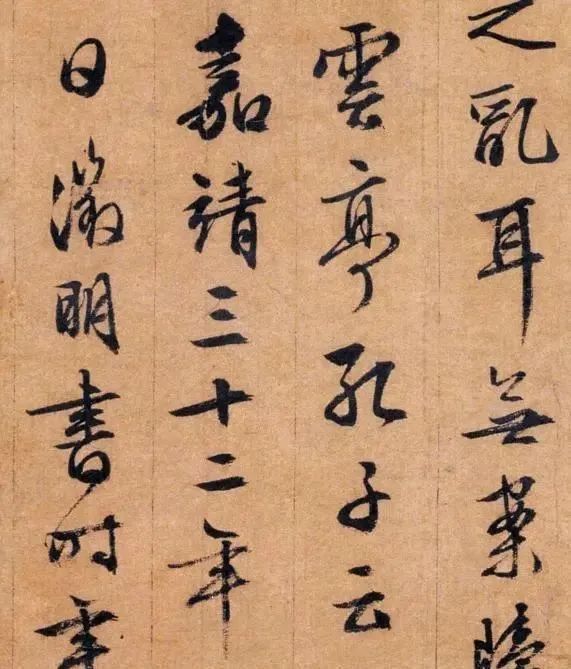 之亂耳無案牘
雲亭孔子云
嘉靖三十二年
日徵明書時年